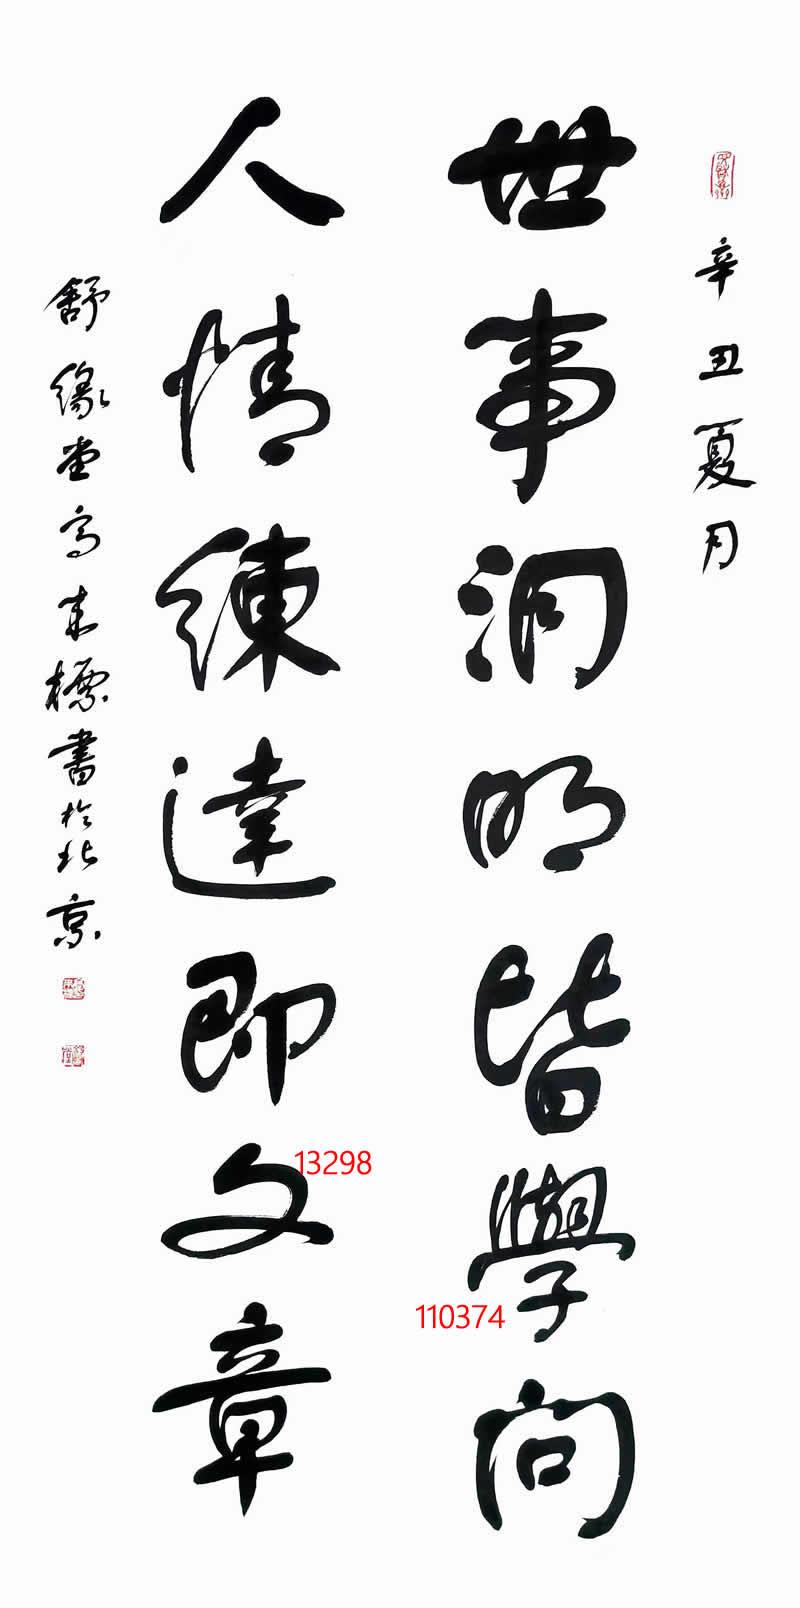 辛丑夏月
世事洞明皆學问
人情練達即文章
舒緣堂高標書於北京
13298
110374